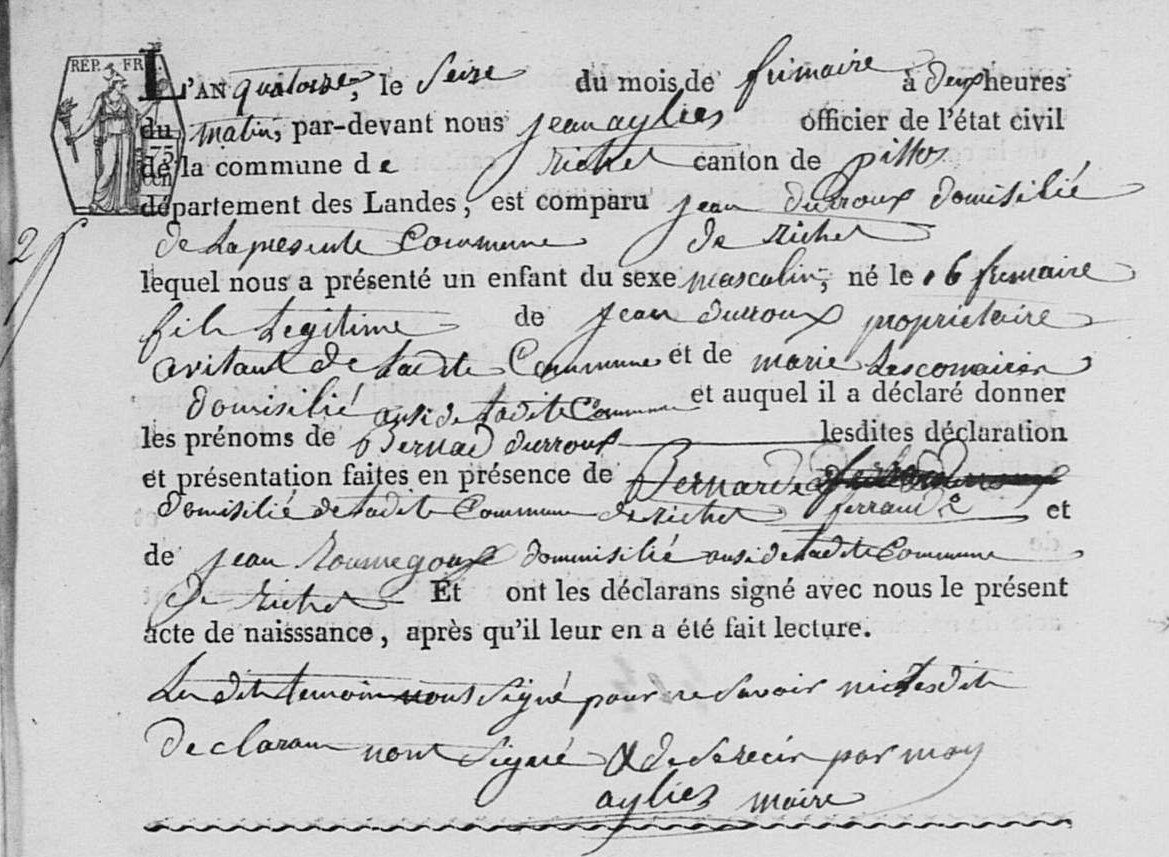 RÉP. FR.
75
CEN
L'AN quatorze, le Seize du mois de frimaire à deux heures
du matin, par-devant nous jean aylies officier de l'état civil
de la commune de richet canton de pissos
département des Landes, est comparu jean durroux domisilié
de la presente Commune de richet
2
lequel nous a présenté un enfant du sexe masculin, né le 16 frimaire
fils Legitime de jean durroux propriétaire
avitant de ladite Commune et de marie
domisilié ausi de ladite Commune et auquel il a déclaré donner
les prénoms de Bernad durroux lesdites déclaration
et présentation faites en présence de Bernard
domisilié de ladite Commune de richet ferrand et
de jean Roumegoux dommisilié ausi de ladite Commune
de richet Et ont les déclarans signé avec nous le présent
acte de naisssance, après qu'il leur en a été fait lecture.
Les dits temoin nous signé pour ne savoir ni lesdits
declarans nont signé de ce par moy
aylies maire